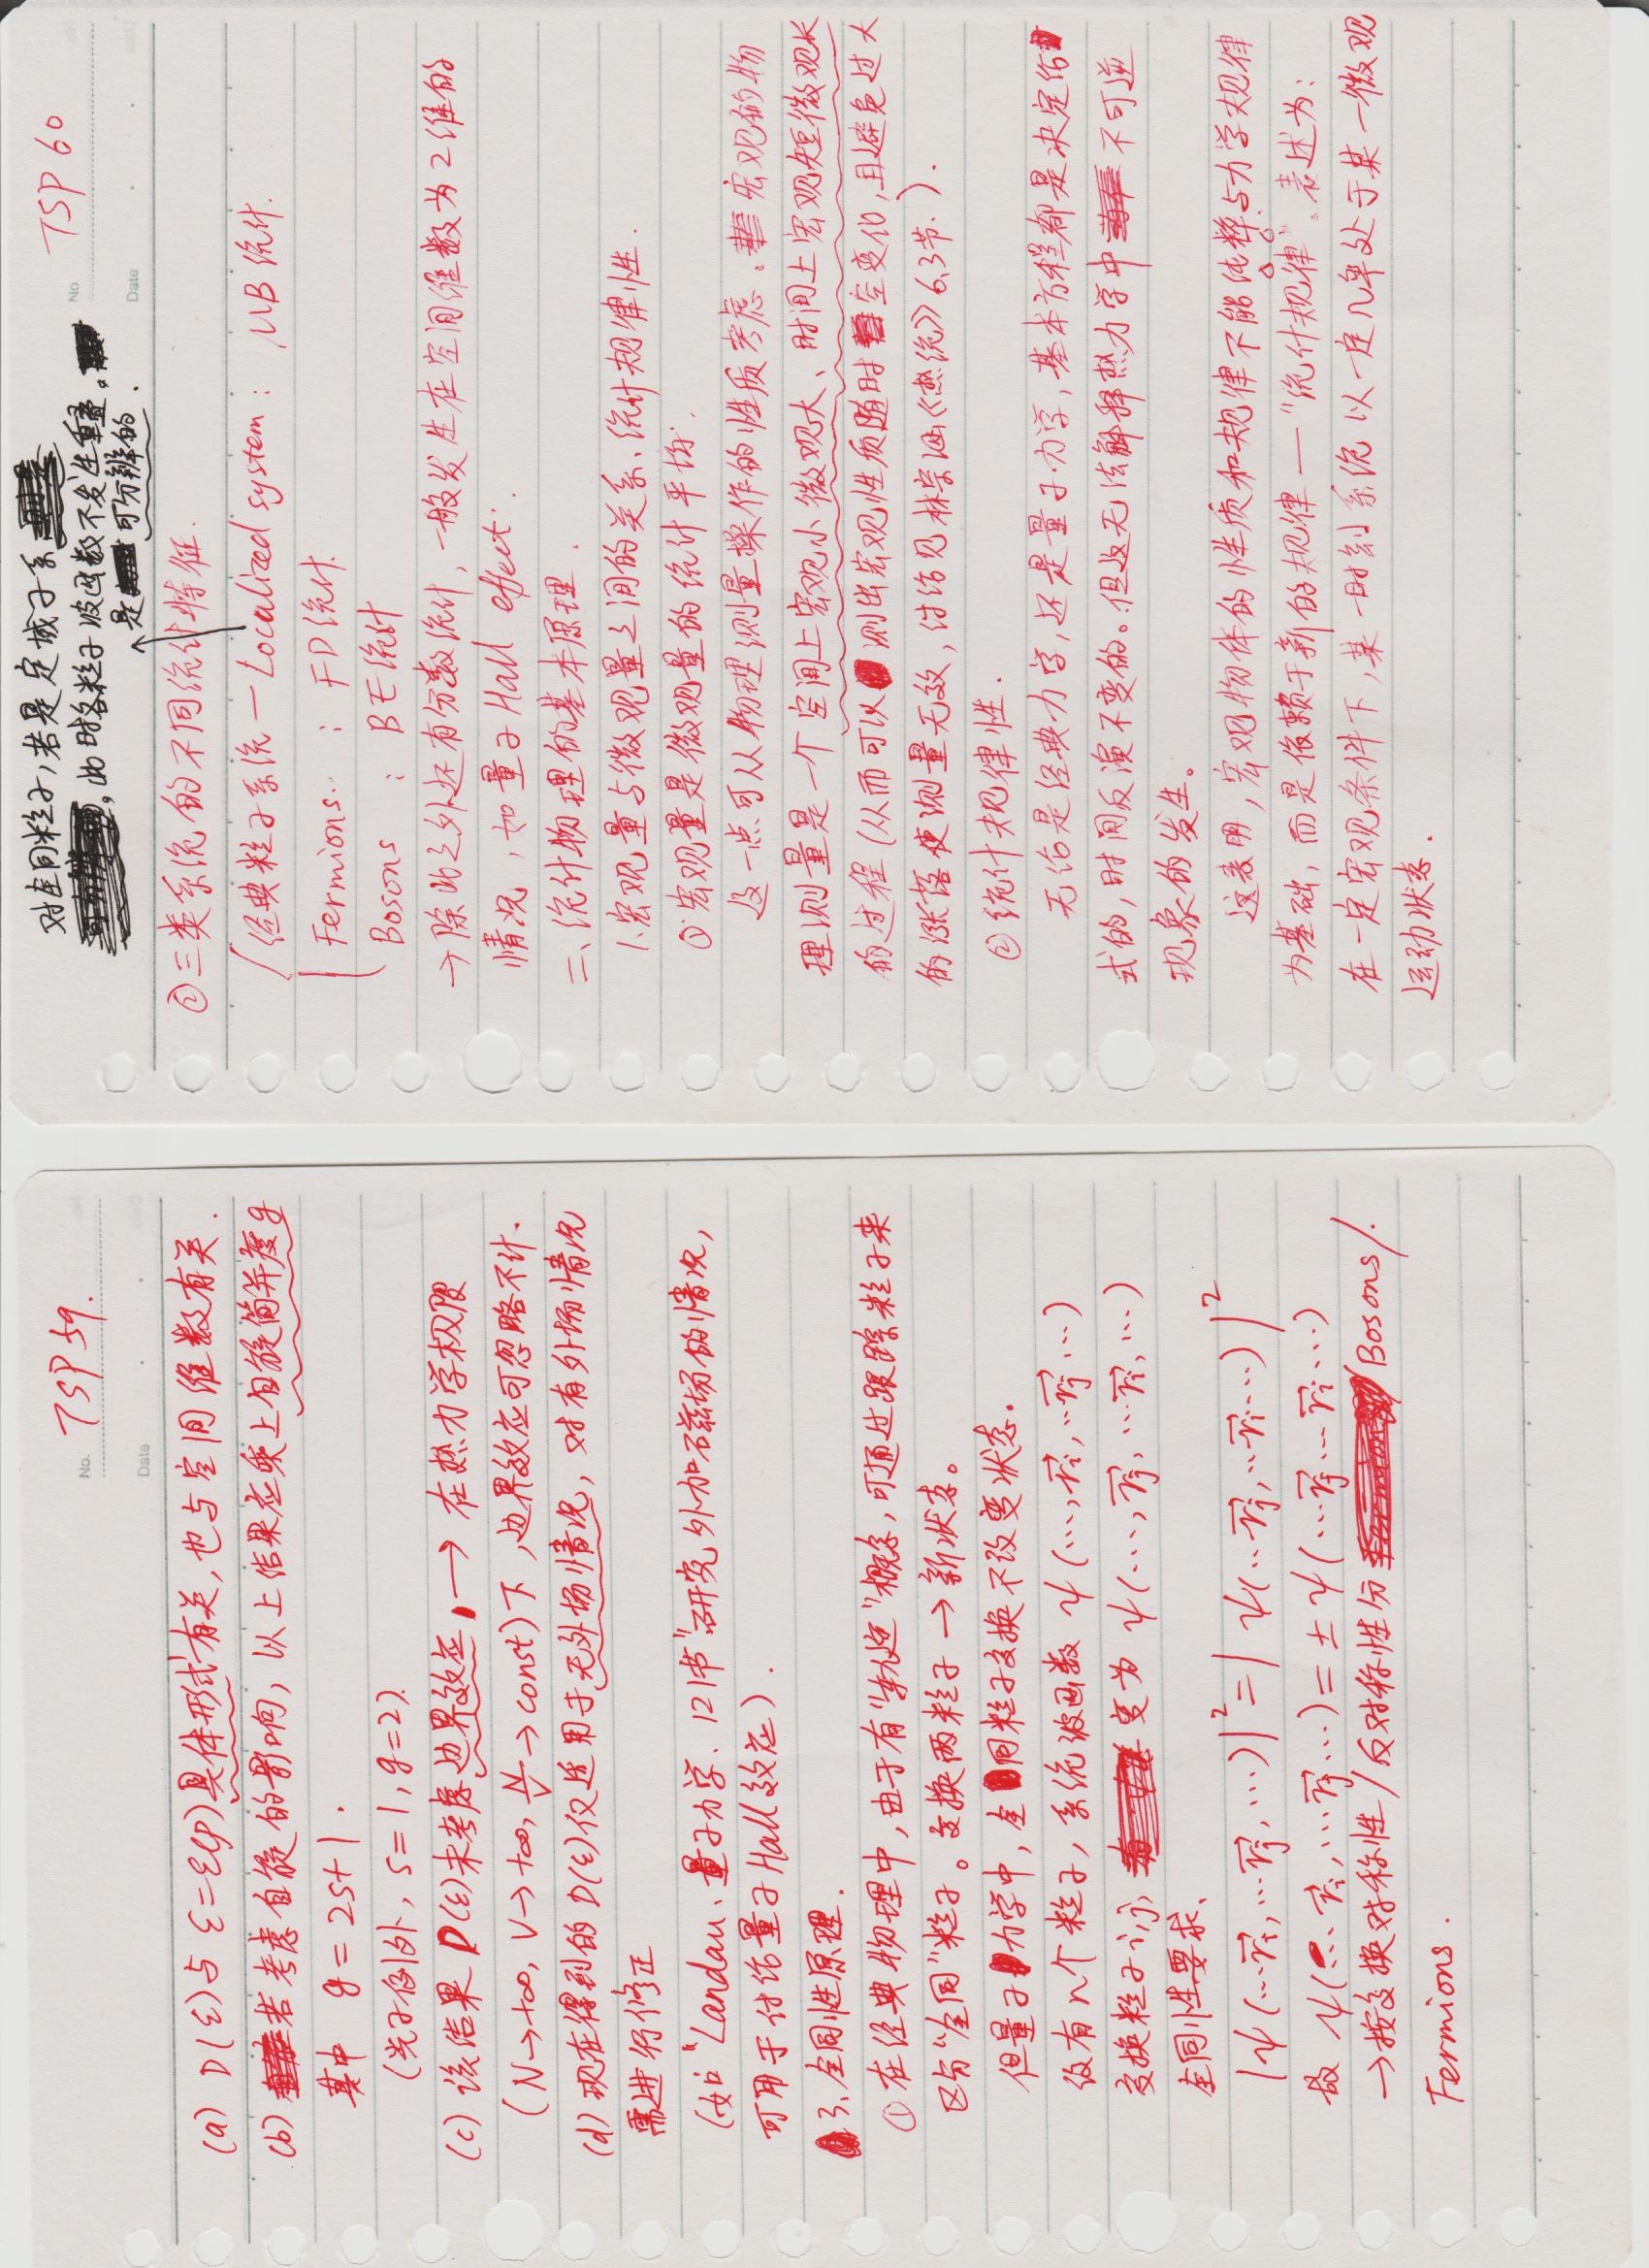 No. TSP 59.
Date
(a) D(ε)与 ε=ε(p)具体形式有关,也与空间维数有关.
(b) 若考虑自旋的影响,以上结果应乘上自旋简并度g
其中 g = 2s+1.
(光子例外, s=1, g=2).
(c) 该结果 D(ε)未考虑边界效应, → 在热力学极限
(N→+∞, V→+∞, N/V → const)下,边界效应可忽略不计.
(d) 现在得到的 D(ε)仅适用于无外场情况,对有外场情况
需进行修正
(如"Landau、量子力学. 121节"研究外加磁场的情况,
可用于讨论量子Hall效应).
3、全同性原理.
① 在经典物理中,由于有"轨迹"概念,可通过跟踪粒子来
区分"全同"粒子。交换两粒子 → 新状态。
但量子力学中,全同粒子交换不改变状态.
设有n个粒子,系统波函数 ψ(…, r⃗i, … r⃗j …)
交换粒子i,j, 变为 ψ(…, r⃗j, … r⃗i, …)
全同性要求、
|ψ(… r⃗i, … r⃗j, …)|² = |ψ(… r⃗j, … r⃗i …)|²
故 ψ(… r⃗i, … r⃗j …) = ± ψ(… r⃗j … r⃗i …)
→按交换对称性/反对称性分 Bosons/.
Fermions.
对全同粒子,若是定域子系
, 此时各粒子波函数不发生重叠。
是 可分辨的.
No. TSP 60
Date
② 三类系统的不同统计特征.
经典粒子系统 — Localized system : MB 统计.
Fermions.. : FD 统计.
Bosons : BE 统计
→ 除此之外还有分数统计, 一般发生在空间维数为2维的
情况,如量子Hall effect.
二、统计物理的基本原理.
1、宏观量与微观量之间的关系、统计规律性.
① 宏观量是微观量的统计平均.
这一点可从物理测量操作的性质考虑。宏观的物
理测量是一个空间上宏观小微观大、时间上宏观短微观长
的过程(从而可以测出宏观性质随时空变化,且避免过大
的涨落使测量无效,讨论见林宗涵《热统》6.3节.).
② 统计规律性.
无论是经典力学,还是量子力学,基本方程都是决定论
式的,时间反演不变的。但这无法解释热力学中不可逆
现象的发生。
这表明,宏观物体的性质和规律不能纯粹与力学规律
为基础,而是依赖于新的规律 — "统计规律"。表述为:
在一定宏观条件下,某一时刻系统以一定几率处于某一微观
运动状态.